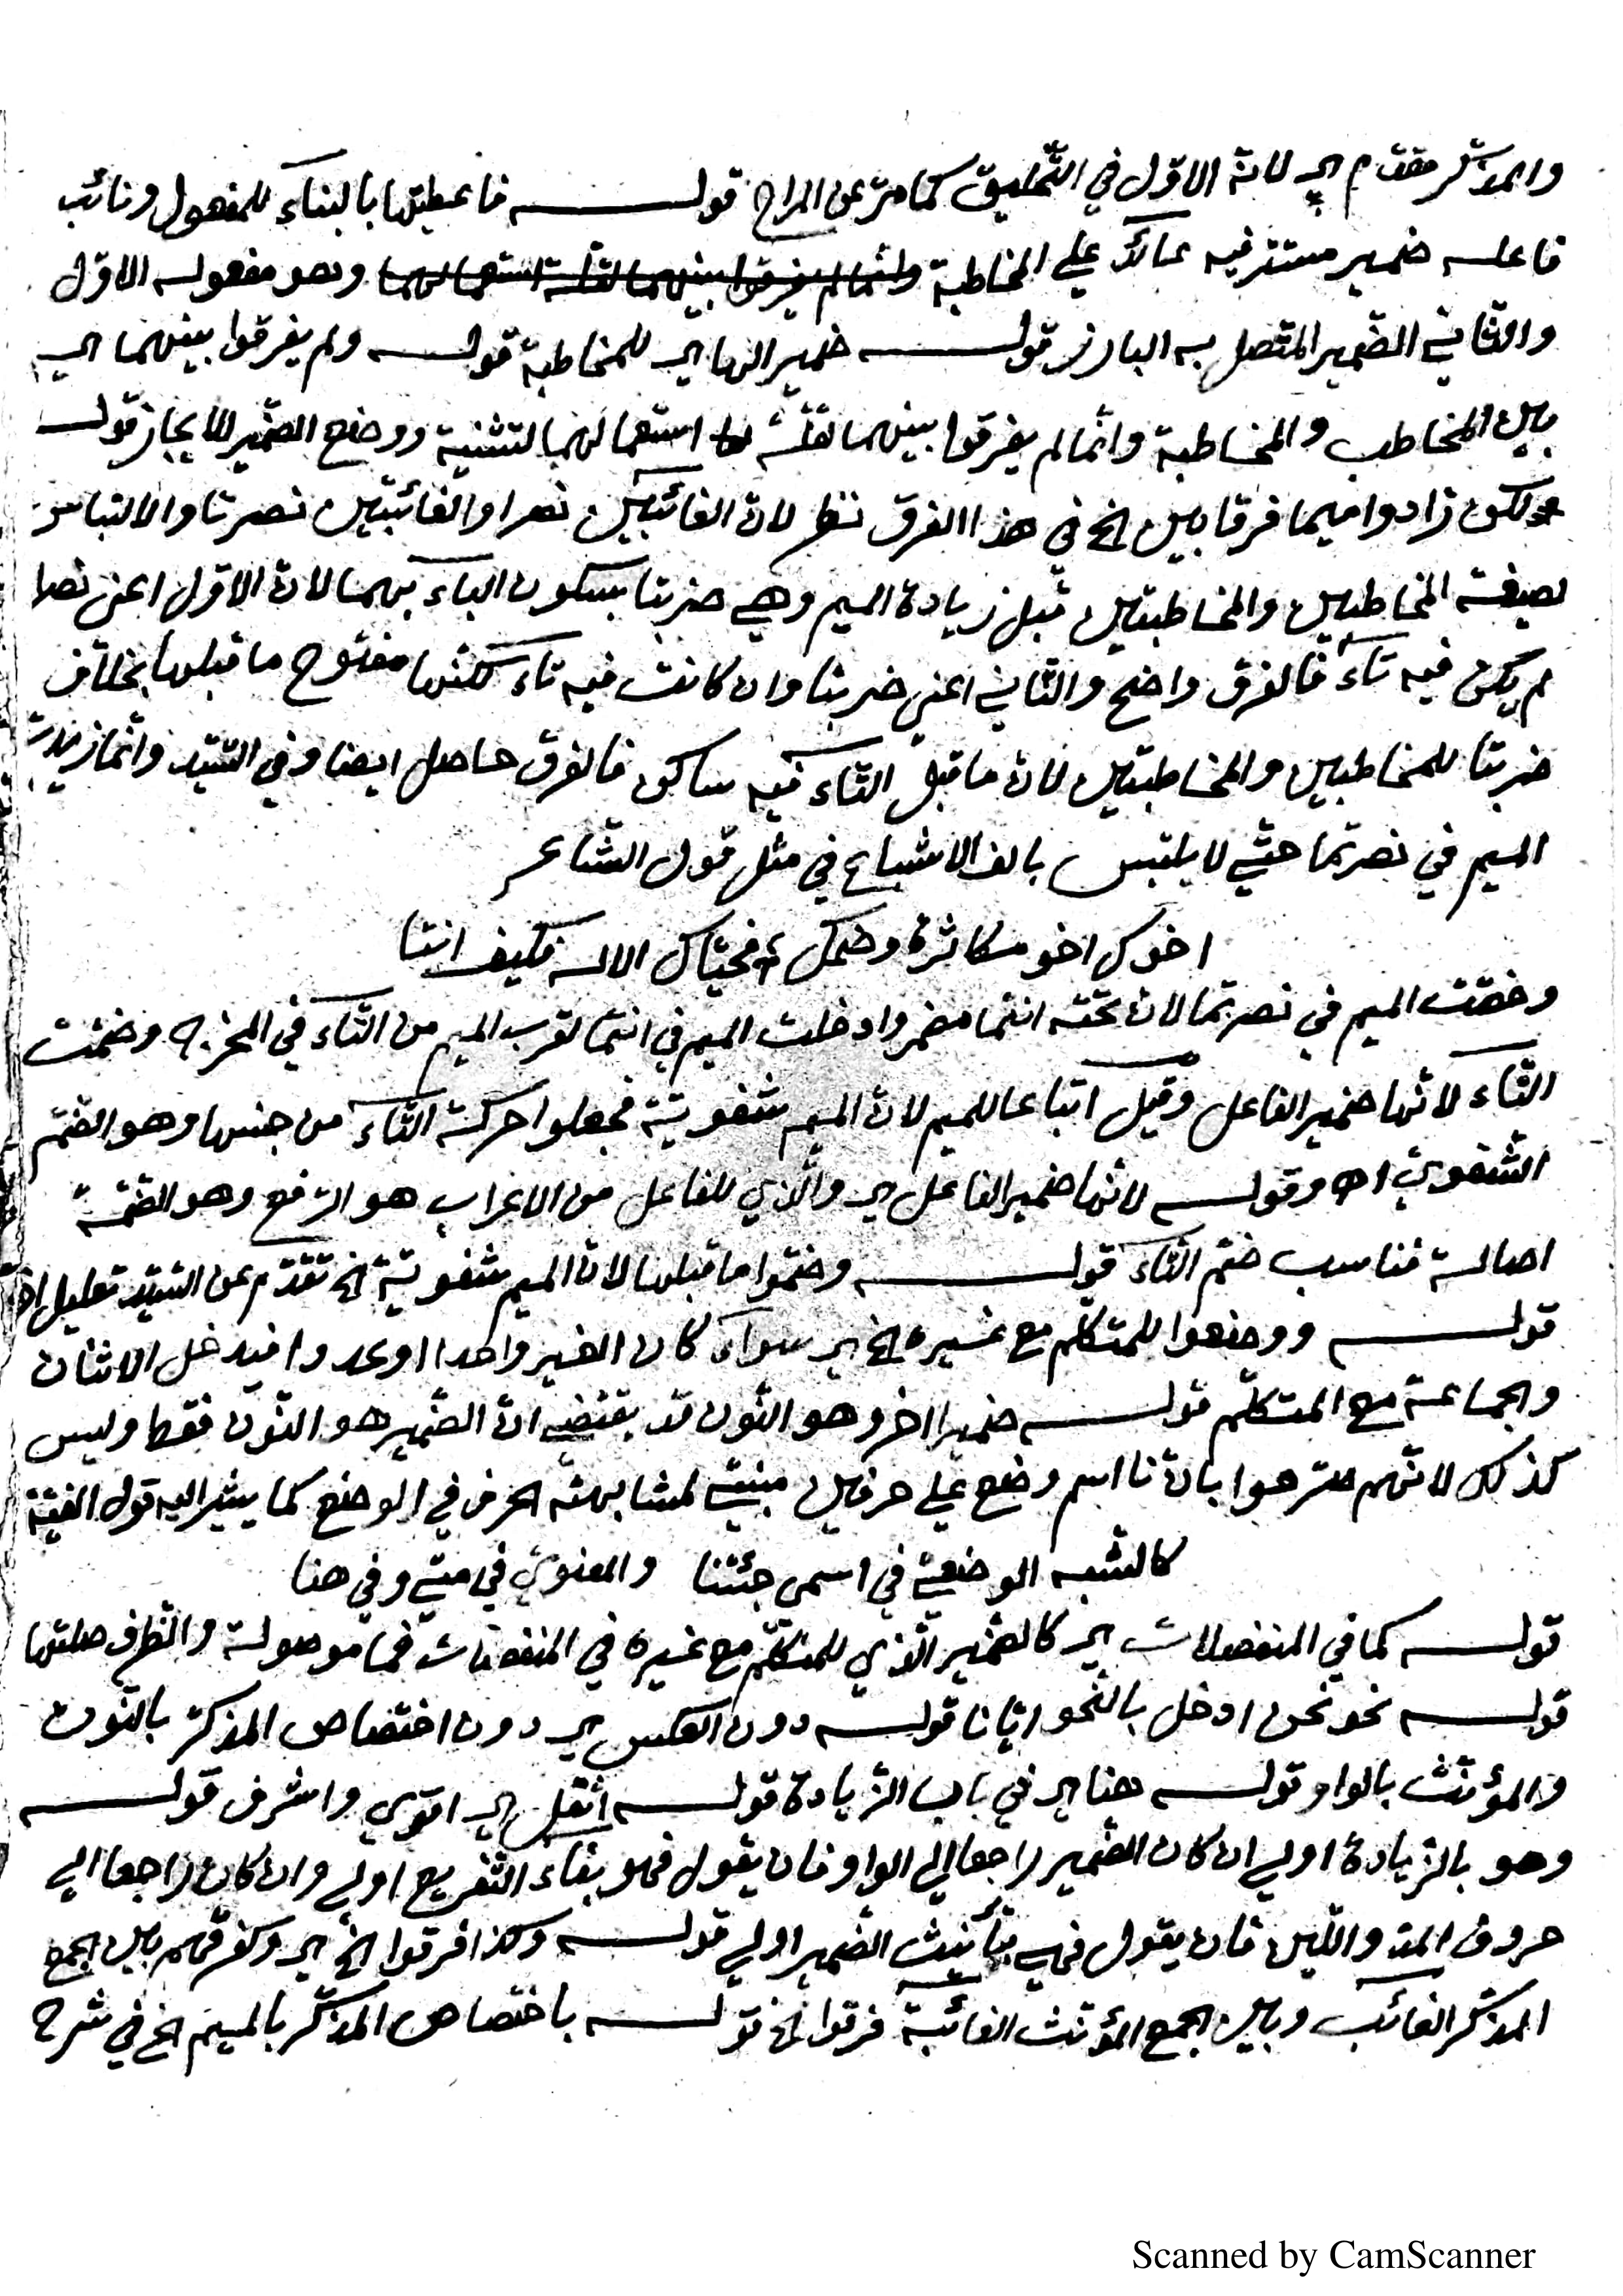 والمذكّر مقدّم اي لانه الاوّل في التخليق كما مرّ عن المراح قولـــه فاعطيتها بالبناء للمفعول ونائب
فاعله ضمير مستتر فيه عائد علي المخاطبة وانّما لم يفرقوا بينهما لقلّة استعمالهما وهو مفعوله الاوّل
والثاني الضّمير المتّصل به البارز قولـــه ضمير الهاي للمخاطبة قولـــه ولم يفرقوا بينهما اي
بين المخاطب والمخاطبة وانّما لم يفرقوا بينهما لقلّة استعمالهما لتثنية ووضع الضّمير للايجاز قولـــه
لكن زادوا ميما فرقا بين الخ في هذا الفرق نظر لانّ الغائبين نصرا والغائبتين نصرتا والالتباس
لصيغة المخاطبين والمخاطبتين قبل زيادة الميم وهي ضربتا بسكون الباء بهما لانّ الاوّل اعني نصرا
لم يكن فيه تاء فالفرق واضح والثاني اعني ضربتا وان كانت فيه تاء لكنّها مفتوح ما قبلها بخلاف
ضربتا للمخاطبين والمخاطبتين لانّ ما قبل التّاء فيه ساكن فالفرق حاصل ايضا وفي السّيّد وانّما زيدت
الميم في نصرتما حتّي لا يلتبس بالف الاشباع في مثل قول الشّاعر
اخوك اخو مكاثرة وضحك فحيّاك الاله فكيف انتا
وخصّت الميم في نصرتما لانّ تحته انتما مضمر وادخلت الميم في انتما لقرب الميم من التّاء في المخرج وضمّت
التّاء لانّها ضمير الفاعل وقيل اتباعا للميم لانّ الميم شفويّة فجعلوا حركة التّاء من جنسها وهو الضّمّ
الشفويّ اه وقولـــه لانّها ضمير الفاعل اي والّذي للفاعل من الاعراب هو الرّفع وهو الضّمّة
اصالة فناسب ضمّ التّاء قولـــه وضمّوا ما قبلها لانّ الميم شفويّة الخ تقدّم عن السّيّد تعليل اخر
قولـــه ووضعوا للمتكلّم مع غيره الخ اي سواء كان الغير واحدا او عددا فيدخل الاثنان
والجماعة مع المتكلّم قولـــه ضميرا اخر وهو النّون قد يقتضي انّ الضّمير هو النّون فقط وليس
كذلك لانّهم صرّحوا بانّ نا اسم وضع علي حرفين مبنيّ لمشابهته الحرف في الوضع كما يشير اليه قول الفيّة
كالشبه الوضعيّ في اسمي جئتنا والمعنويّ في متي وفي هنا
قولـــه كما في المنفصلات اي كالضّمير الّذي للمتكلّم مع غيره في المنفصلات فما موصولة والظرف صلتها
قولـــه نحو نحن ادخل بالنّحو ايّانا قولـــه دون العكس اي دون اختصاص المذكّر بالنّون
والمؤنّث بالواو قولـــه هنا اي في باب الزّيادة قولـــه اثقل اي اقوي واشرف قولـــه
وهو بالزّيادة اولي ان كان الضّمير راجعا الي الواو فان يقول فهو بفاء التّفريع اولي وان كان راجعا الي
حروف المدّ واللّين فان يقول فهي بتأنيث الضّمير اولي قولـــه وكذا فرقوا الخ اي وكفرقهم بين الجمع
المذكّر الغائب وبين الجمع المؤنّث الغائبة فرقوا الخ قولـــه باختصاص المذكّر بالميم الخ في شرح
Scanned by CamScanner